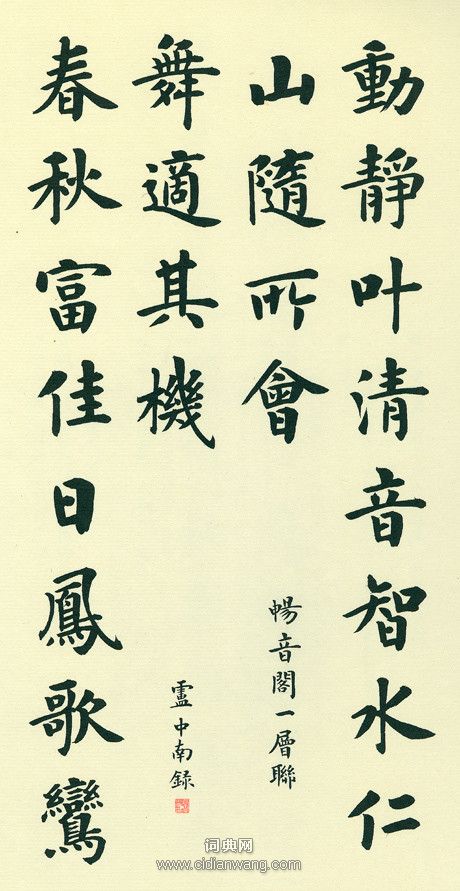 動靜叶清音智水仁
山隨所會
暢音閣一層聯
春秋富佳日鳳歌鸞
舞適其機
盧中南録
词典网
www.cidianwang.com